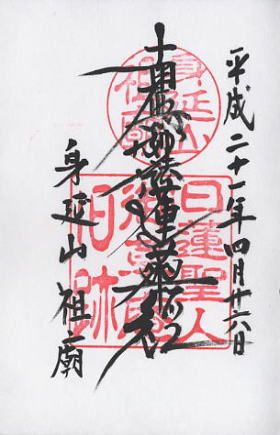 平成二十一年四月廿六日
南無妙法蓮華経
身延山祖廟
身延山
祖廟
日蓮聖人
旧跡